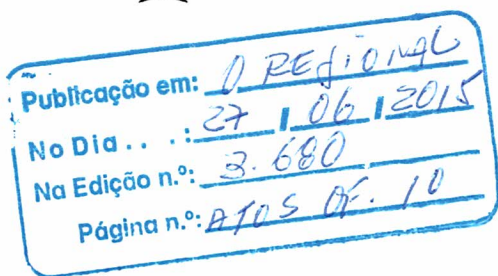 Publicação em: O REGIONAL
No Dia . . . : 27 / 06 / 2015
Na Edição n.º: 3.680
Página n.º: ATOS OF. 10